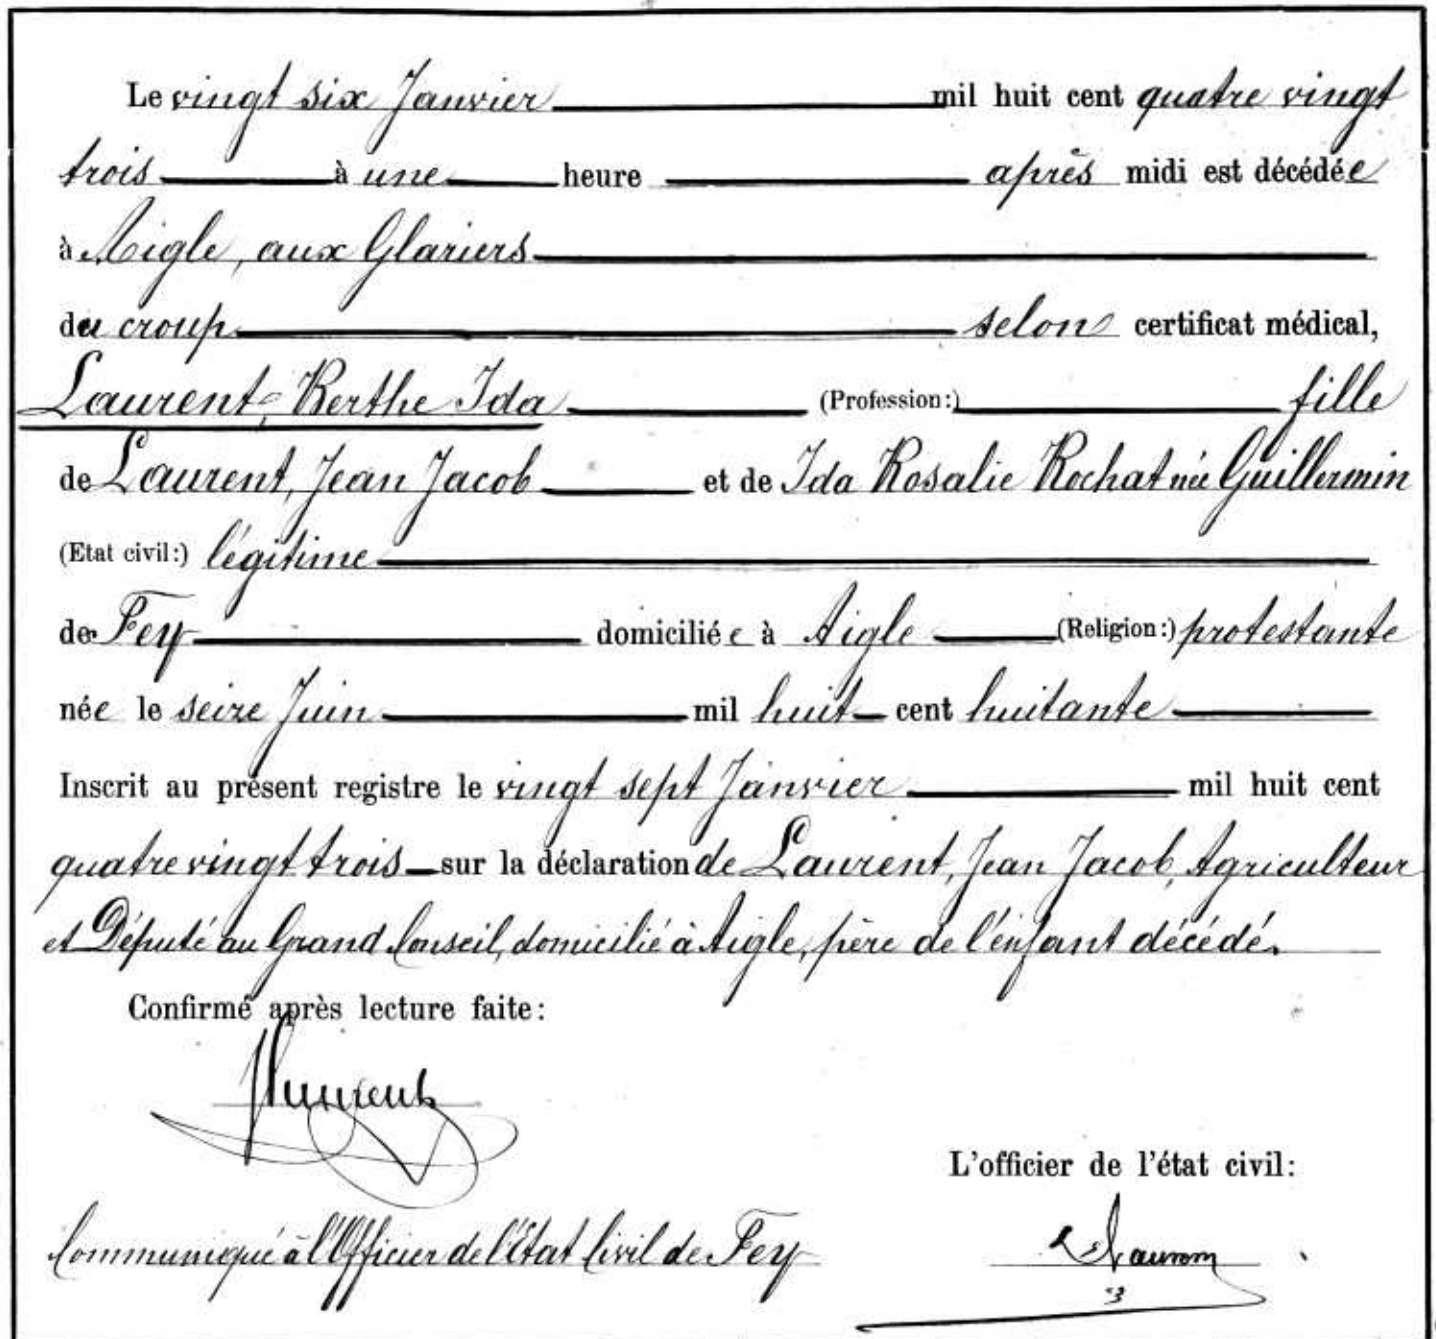 Le vingt six Janvier mil huit cent quatre vingt
trois à une heure après midi est décédée
à Aigle, aux Glariers
du croup selon certificat médical,
Laurent, Berthe Ida (Profession:) fille
de Laurent, Jean Jacob et de Ida Rosalie Rochat née Guillermin
(Etat civil:) légitime
de Fey domiciliée à Aigle (Religion:) protestante
née le seize Juin mil huit cent huitante
Inscrit au présent registre le vingt sept Janvier mil huit cent
quatre vingt trois sur la déclaration de Laurent, Jean Jacob, Agriculteur
et Député au Grand Conseil, domicilié à Aigle, père de l'enfant décédé.
Confirmé après lecture faite:
Laurent
L'officier de l'état civil:
Communiqué à l'Officier de l'Etat Civil de Fey